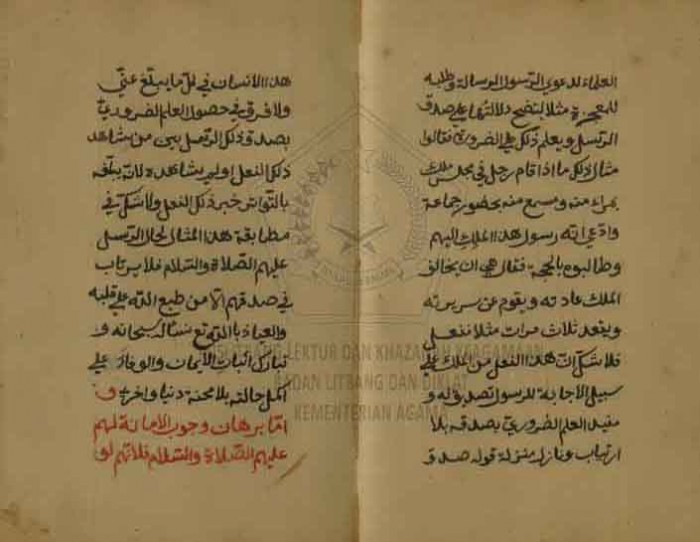 العلماء لدعوى الرسول الرسالة وطلبه
للمعجزة مثلا لتضح دلالتها على صدق
الرسل ويعلم ذلك على الضرورة فقالوا
مثال ذلك ما اذا قام رجل في مجلس ملك
بمراء منه ومسمع منه بحضور جماعة
وادعى انه رسول هذا الملك اليهم
وطالبوه بالحجة فقال هي ان يخالف
الملك عادته ويقوم عن سريرته
ويقعد ثلاث مرات مثلا ففعل
فلا شك ان هذا الفعل من الملك على
سبيل الاجابة للرسول تصدق له و
مفيد العلم الضروري بصدقه بلا
ارتياب ونازل منزلة قوله صدق
هذا الانسان في كل ما يبلغ عني
ولا فرق في حصول العلم الضروري
بصدق ذلك الرسل بين من شاهد
ذلك الفعل او لم يشاهد لانه بلغه
بالتواتر خبر ذلك الفعل ولا شك في
مطابقة هذا المثال لحال الرسل
عليهم الصلاة والسلام فلا يرتاب
في صدقهم الا من طبع الله على قلبه
والعياذ بالله نسئله سبحانه و
تبارك اثبات الايمان والوفاة على
اكمل حالته بلا محنة دنيا واخرى و
اما برهان وجوب الامانة لهم
عليهم الصلاة والسلام فلانهم لو
LEKTUR DAN KHAZANAH KEAGAMAAN
BADAN LITBANG DAN DIKLAT
KEMENTERIAN AGAMA